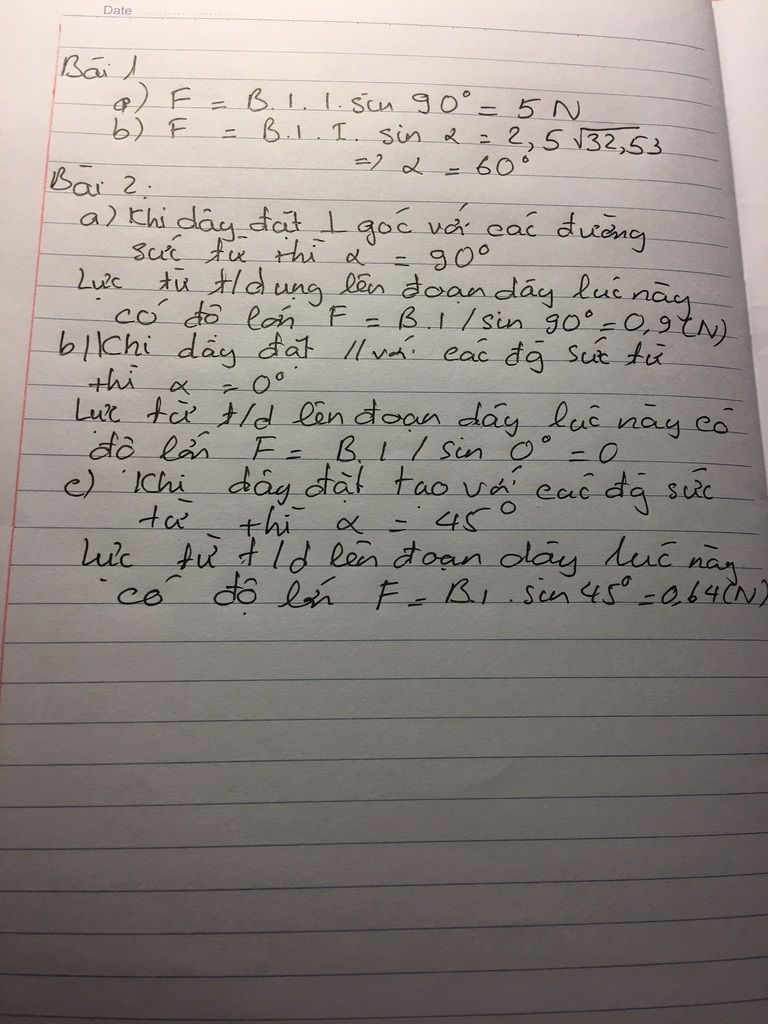 Date
Bài 1
a) F = B.I.l.sin 90° = 5 N
b) F = B.I.I. sin α = 2,5√32,53
=> α = 60°
Bài 2:
a) Khi dây đặt ⊥ góc với các đường
sức từ thì α = 90°
Lực từ t/dụng lên đoạn dây lúc này
có độ lớn F = B.I/sin 90° = 0,9 (N)
b) Khi dây đặt // với các đg sức từ
thì α = 0°
Lực từ t/d lên đoạn dây lúc này có
độ lớn F = B.I/sin 0° = 0
c) Khi dây đặt tao với các đg sức
từ thì α = 45°
Lực từ t/d lên đoạn dây lúc này
có độ lớn F = B.I.sin 45° = 0,64(N)